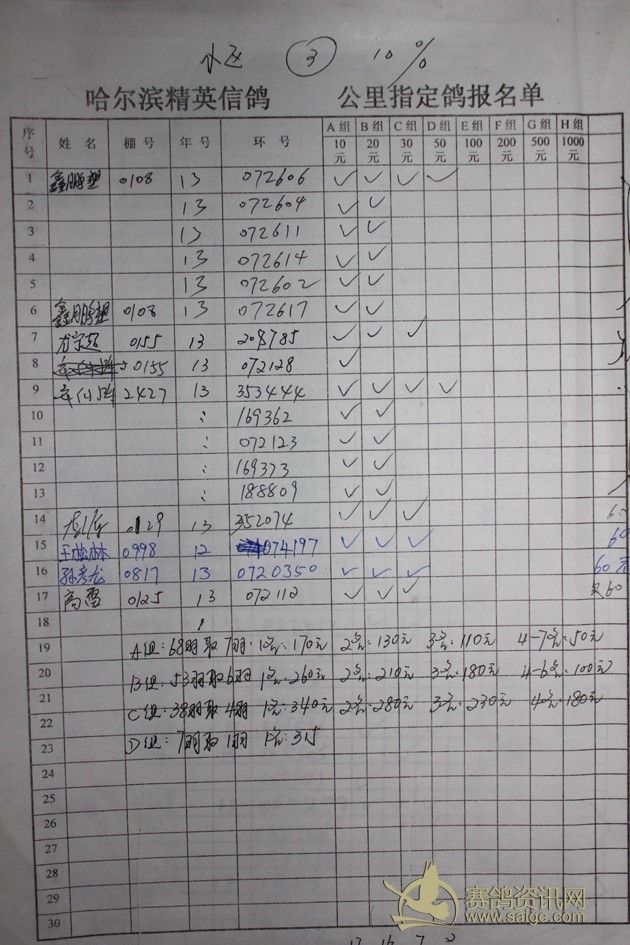 小区 ③ 10%
哈尔滨精英信鸽 公里指定鸽报名单
序号 姓名 棚号 年号 环号 A组 10元 B组 20元 C组 30元 D组 50元 E组 100元 F组 200元 G组 500元 H组 1000元
1 鑫鹏翅 0108 13 072606 ✓ ✓ ✓ ✓
2 13 072604 ✓ ✓
3 13 072611 ✓ ✓
4 13 072614 ✓ ✓
5 13 072602 ✓ ✓
6 鑫鹏翅 0108 13 072617 ✓ ✓
7 0155 13 208785 ✓ ✓ ✓
8 0155 13 072128 ✓
9 2427 13 353444 ✓ ✓ ✓ ✓
10 : 169362 ✓ ✓
11 : 072123 ✓ ✓
12 : 169373 ✓ ✓
13 : 188809 ✓ ✓
14 0129 13 352074 ✓ ✓ ✓ 60
15 王松林 0998 12 074197 ✓ ✓ ✓ 60
16 孙彦龙 0817 13 0720350 ✓ ✓ ✓ 60元
17 高雪 0125 13 072112 ✓ ✓ ✓ 欠60
18
19 A组:68羽取7羽·1名·170元 2名·130元 3名·110元 4-7名·50元
20 B组·53羽取6羽 1名·260元 2名·210元 3名·180元 4-6名·100元
21 C组:38羽取4羽 1名·340元 2名·280元 3名·230元 4名·180元
22
23 D组:7羽取1羽 1名:315
24
25
26
27
28
29
30
赛鸽资讯网
www.saige.com